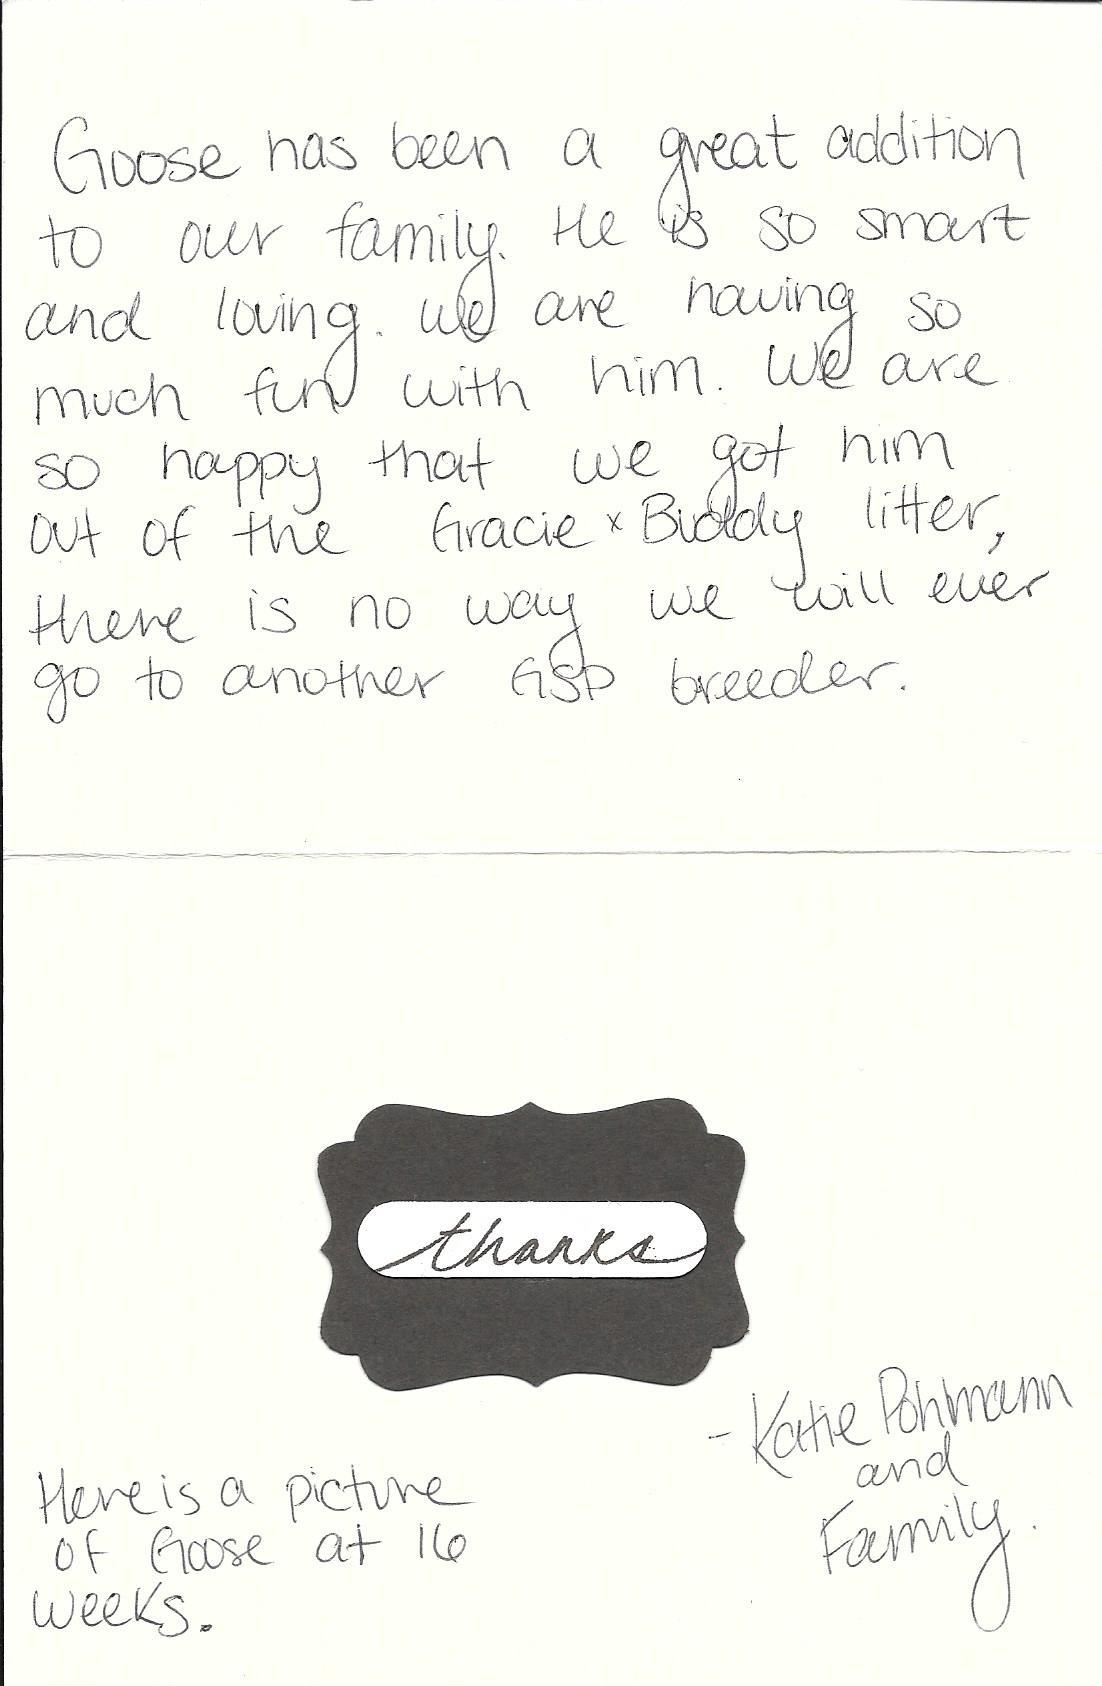 Goose has been a great addition
to our family. He is so smart
and loving. We are having so
much fun with him. We are
so happy that we got him
out of the Gracie x Buddy litter,
there is no way we will ever
go to another GSP breeder.
thanks
- Katie Pohlmann
and
Family.
Here is a picture
of Goose at 16
weeks.